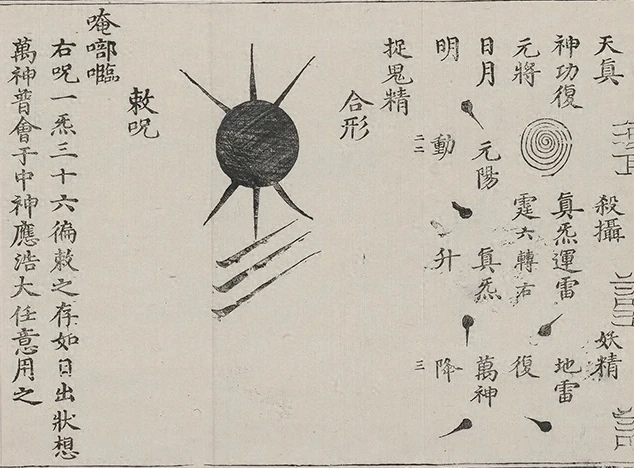 天真 殺攝 妖精
神功復 真炁運雷 地雷
元將 霆六轉右 復
日月 元陽 真炁 萬神
明 動 升 降
二二 三
捉鬼精
合形
敕呪
唵
右呪一炁三十六徧敕之存如日出狀想
萬神普會于中神應浩大任意用之